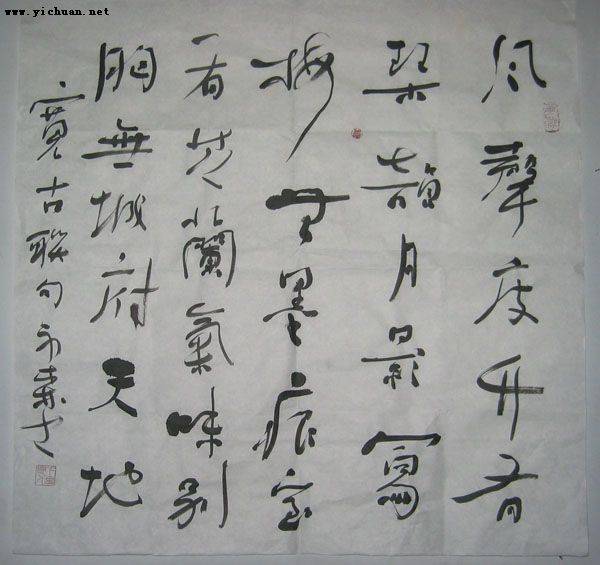 www.yichuan.net
风聲度竹有
琴韻月影寫
梅無墨痕室
有芝蘭氣味別
胸無城府天地
寬古聯句书